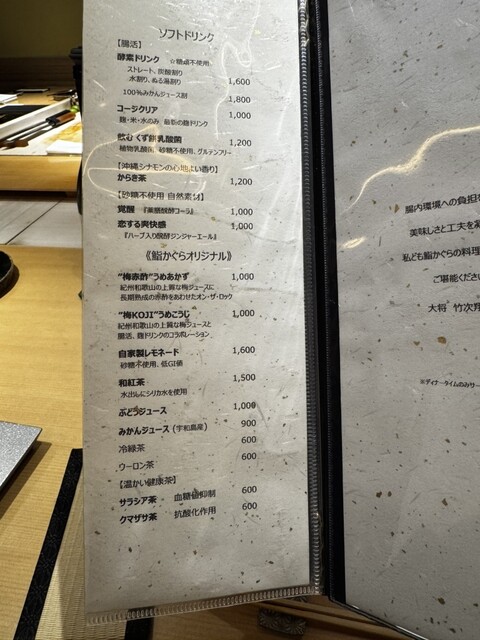 ソフトドリンク
【腸活】
酵素ドリンク ☆糖類不使用、
ストレート、炭酸割り
水割り、ぬる湯割り 1,600
100%みかんジュース割 1,800
コージクリア 1,000
麹・米・水のみ 最新の麹ドリンク
飲むくず餅乳酸菌 1,200
植物乳酸菌、砂糖不使用、グルテンフリー
【沖縄シナモンの心地よい香り】
からき茶 1,200
【砂糖不使用 自然素材】
覚醒 『薬膳醗酵コーラ』 1,000
恋する爽快感 1,000
『ハーブ入り醗酵ジンジャーエール』
《鮨かぐらオリジナル》
“梅赤酢”うめあかず 1,000
紀州和歌山の上質な梅ジュースに
長期熟成の赤酢をあわせたオン・ザ・ロック
“梅KOJI”うめこうじ 1,000
紀州和歌山の上質な梅ジュースと
腸活、麹ドリンクのコラボレーション
自家製レモネード 1,600
砂糖不使用、低GI値
和紅茶 1,500
水出しにシリカ水を使用
ぶどうジュース 1,000
みかんジュース (宇和島産) 900
冷緑茶 600
ウーロン茶 600
【温かい健康茶】
サラシア茶 血糖値抑制 600
クマザサ茶 抗酸化作用 600
腸内環境への負担を
美味しさと工夫を凝
私ども鮨かぐらの料理
ご堪能くださ
大将 竹次翔
※ディナータイムのみサー